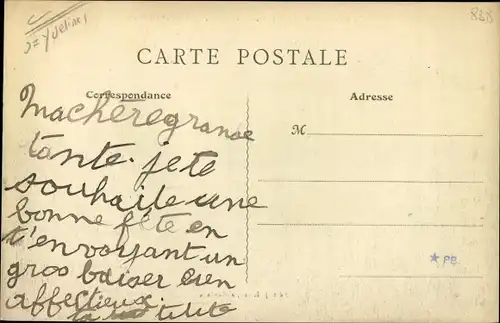 = Yvelines
838
CARTE POSTALE
Correspondance
Adresse
M
machère grande
tante. je te
souhaite une
bonne fête en
t'envoyant un
gros baiser bien
affectieux.
ta titite
* PB